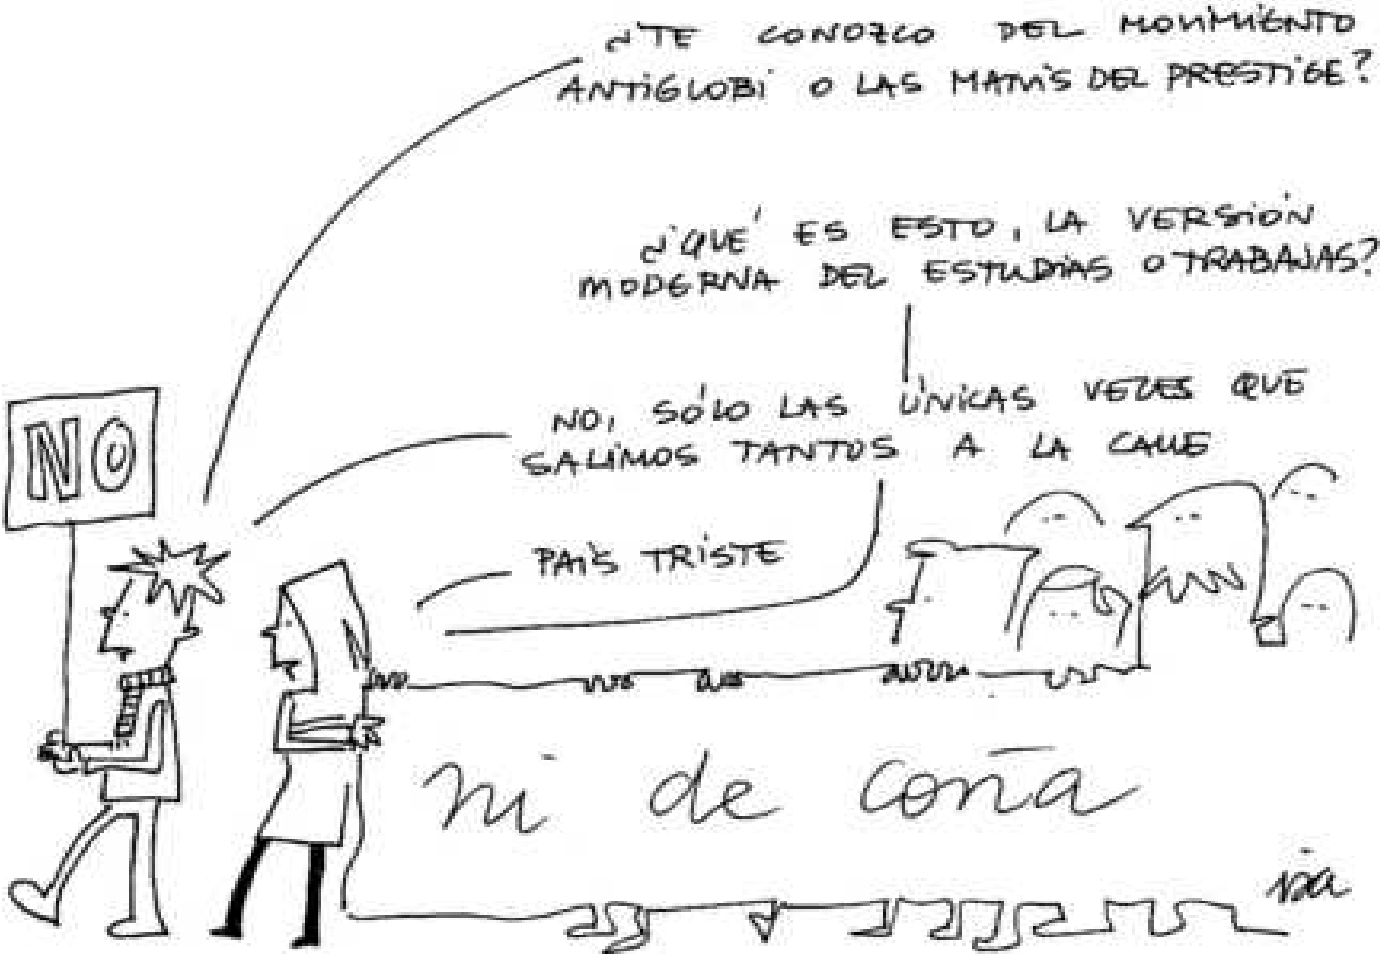 ¿TE CONOZCO DEL MOVIMIENTO
ANTIGLOBI O LAS MANIS DEL PRESTIGE?
¿QUÉ ES ESTO, LA VERSIÓN
MODERNA DEL ESTUDIAS O TRABAJAS?
NO, SÓLO LAS ÚNICAS VECES QUE
SALIMOS TANTOS A LA CALLE
PAÍS TRISTE
NO
ni de coña